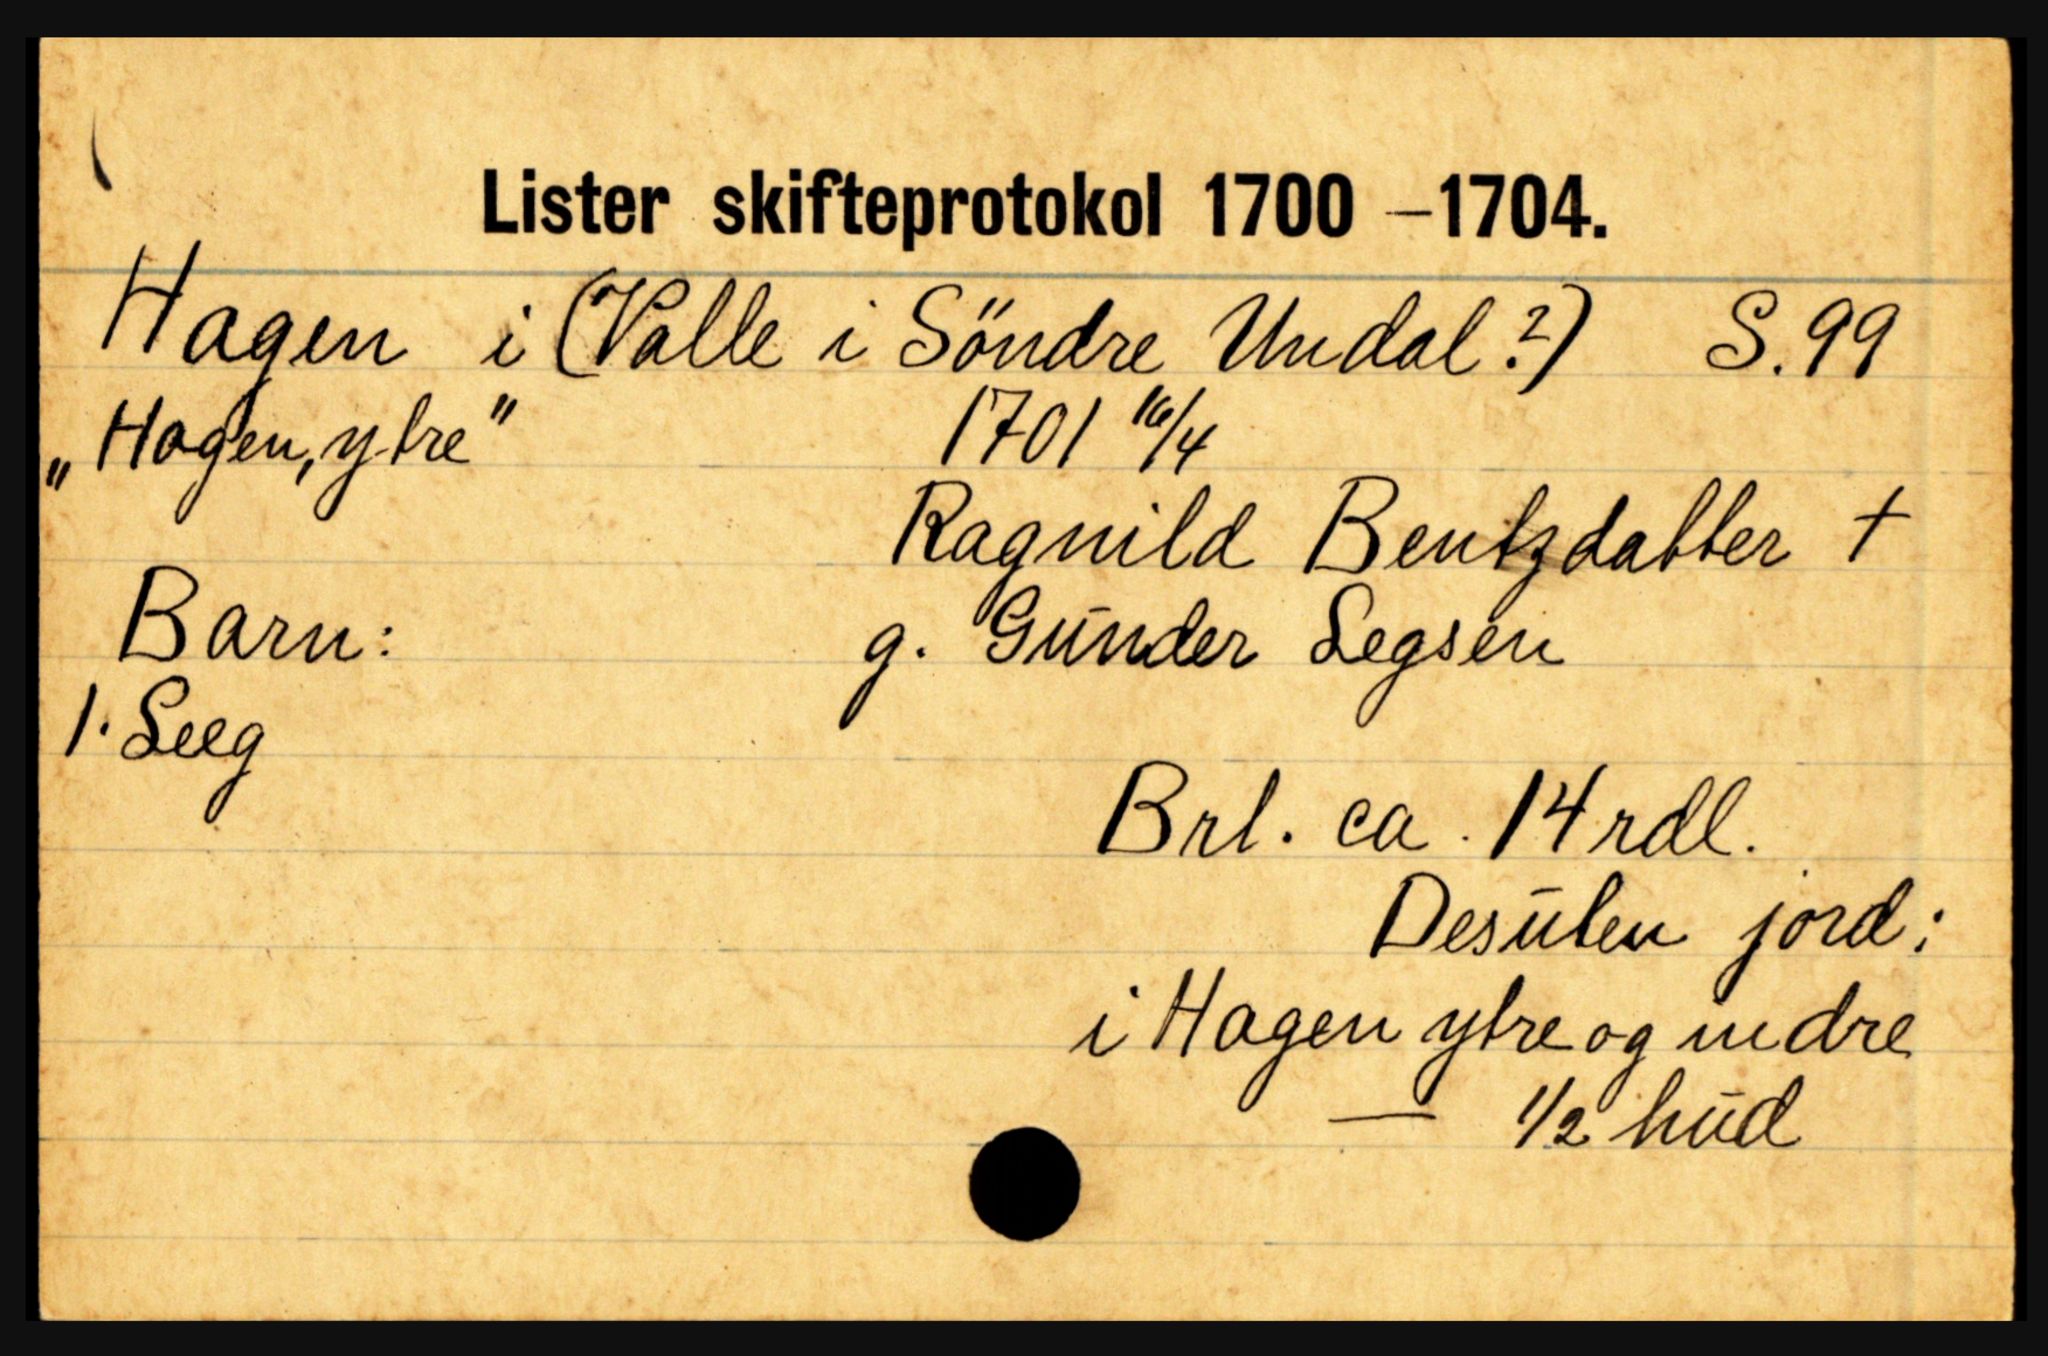 Lister skifteprotokol 1700 – 1704.
Hagen i (Valle i Söndre Undal?) S. 99
„Hagen, ytre" 1701 16/4
Ragnild Bentzdatter †
Barn: g. Gunder Segsen
1. Seeg
Brl. ca. 14 rdl.
Desuten jord:
i Hagen ytre og indre
— 1/2 hud